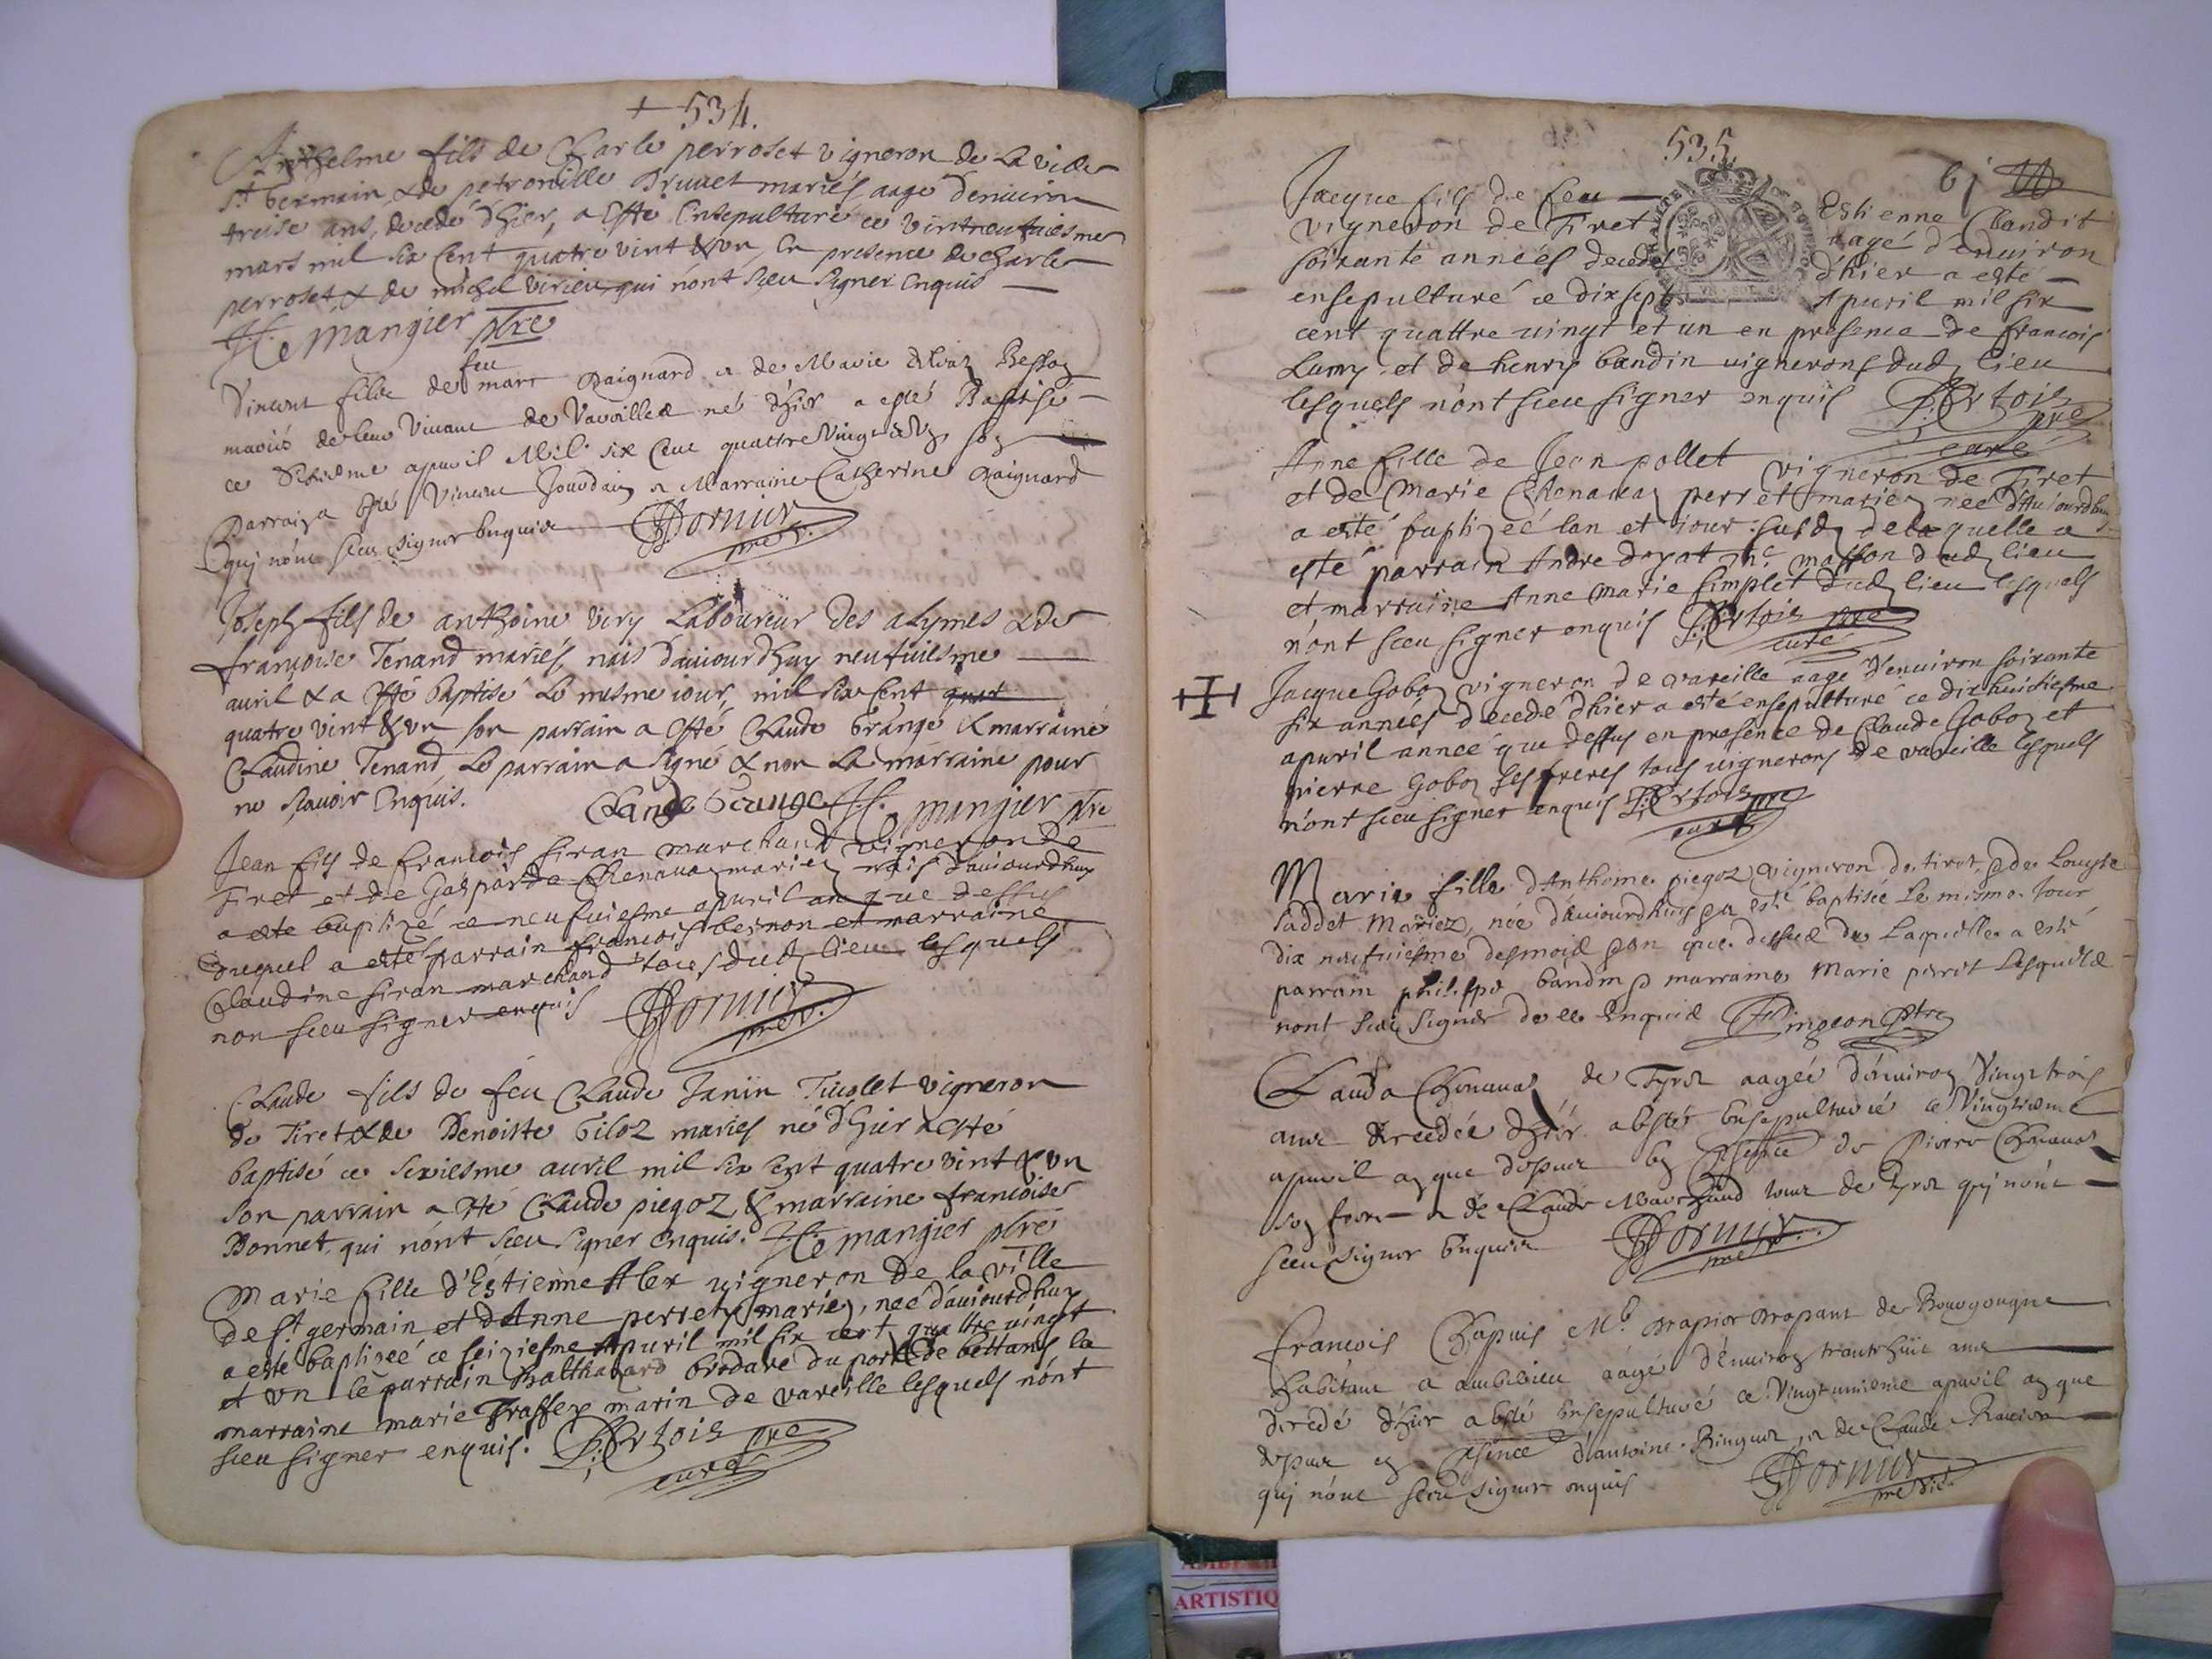 534.
Anthelme fils de Charle perroset vigneron de La ville
St Germain, & de petronille Bruuet mariés aage denuiron
treise ans, decedé d'hier, a esté Ensepulturé ce vintneufuiesme
mars mil six Cent quatre vint & vn, En presence de charle
perroset, & de michel virieu qui n'ont sceu signer Enquis
mangier ptre
feu
Vincent filz de marc Raignard
mariés de leur Viuant de Vavoilles né d'hier a esté Baptisé
ce apuril Mil six Cent quattre Vingt
Parrain a esté Vincent Jourdain & Marraine Catherine Raignard
quj n'ont sceu signer Enquis Dornier
Joseph fils de anthoine Viry Laboureur des alymes & de
françoise Tenand mariés, nais D'auiourdhuy neufuiesme
auril & a esté Baptisé Le mesme iour, mil six Cent
quatre vint & vn son parrain a esté Claude Grange & marraine
Claudine Tenand Le parrain a signé & non La marraine pour
ne sçauoir Enquis. Claude Grange mangier ptre
Jean fils de francois siran marchand vigneron de
Tiret et de Gasparde Chenaua mariez nais dauiourdhuy
a este baptizé ce neufuiesme apuril an que dessus
duquel a esté parrain francois bernon et marraine
Claudine siran marchand tous dud lieu lesquels
non sceu signer enquis Dornier
Claude fils de feu Claude Janin Tiuolet vigneron
de Tiret & de Benoiste Giloz mariés né d'hier a esté
baptisé ce sexiesme auril mil six Cent quatre vint & vn
son parrain a esté Claude piegoz & marraine francoise
Bonnet, qui n'ont sceu signer Enquis. mangier ptre
Marie fille d'Estienne Alex vigneron de la ville
de St germain et d'Anne perret mariez, née d'auiourdhuy
a esté baptizeé ce seiziesme Apuril mil six cent quattre vingt
et vn le parrain Balthazard Brodare du port de bettans la
marraine marie Traffex marin de vareille lesquels n'ont
sceu signer enquis. Ertois pre
curé
535
61
Jacque fils de feu Estienne Claudit
vigneron de Tiret aagé d'enuiron
soixante années decedé d'hier a esté
ensepulturé ce dix sept Apuril mil six
cent quattre uingt et un en presence de francois
Lamy et de henry bandin uignerons dud lieu
lesquels n'ont sceu signer enquis Ertois
pre
curé
Anne fille de Jean pollet vigneron de Tiret
et de Marie Chenaua perret mariez née d'Auiourdhuy
a esté baptizeé lan et iour susd de laquelle a
esté parrain Andre doyat me masson dud lieu
et marraine Anne Marie simplet dud lieu lesquels
n'ont sceu signer enquis Ertois pre
curé
Jacque Goboz vigneron de vareille aagé d'enuiron soixante
six années decedé d'hier a esté ensepulturé ce dix huictiesme
apuril année que dessus en presence de Claude Goboz et
pierre Goboz ses freres tous uignerons de vareille lesquels
n'ont sceu signer enquis Ertois pre
curé
Marie fille d'Anthoine piegoz vigneron de tiret, & de Louyse
Saddet Mariez, née d'auiourdhuy & a esté baptisée Le mesme Jour
dix neufuiesme desmois & an que dessus de Laquelle a esté
parrain philippe bandin & marraine Marie perret Lesquels
nont sceu signer de ce Enquis Pingeon ptre
Clauda Chenaua de Tyret aagée d'enuiron Vingt trois
ans decedée d'hier a esté Ensepulturée ce Vingtiesme
apuril an que dessus En presence de Pierre Chenaua
son frere & de Claude Marchand tous de Tyret quj n'ont
sceu signer Enquis Dornier
Francois Chapuis Me drapier drapant de Bourgongne
habitant a ambérieu aagé d'enuiron trente huit ans
decedé d'hier a esté Ensepulturé ce Vingt uniesme apuril an que
dessus en presence d'antoine Ringuet, & de Claude
quj n'ont sceu signer enquis Dornier
ARTISTIQ